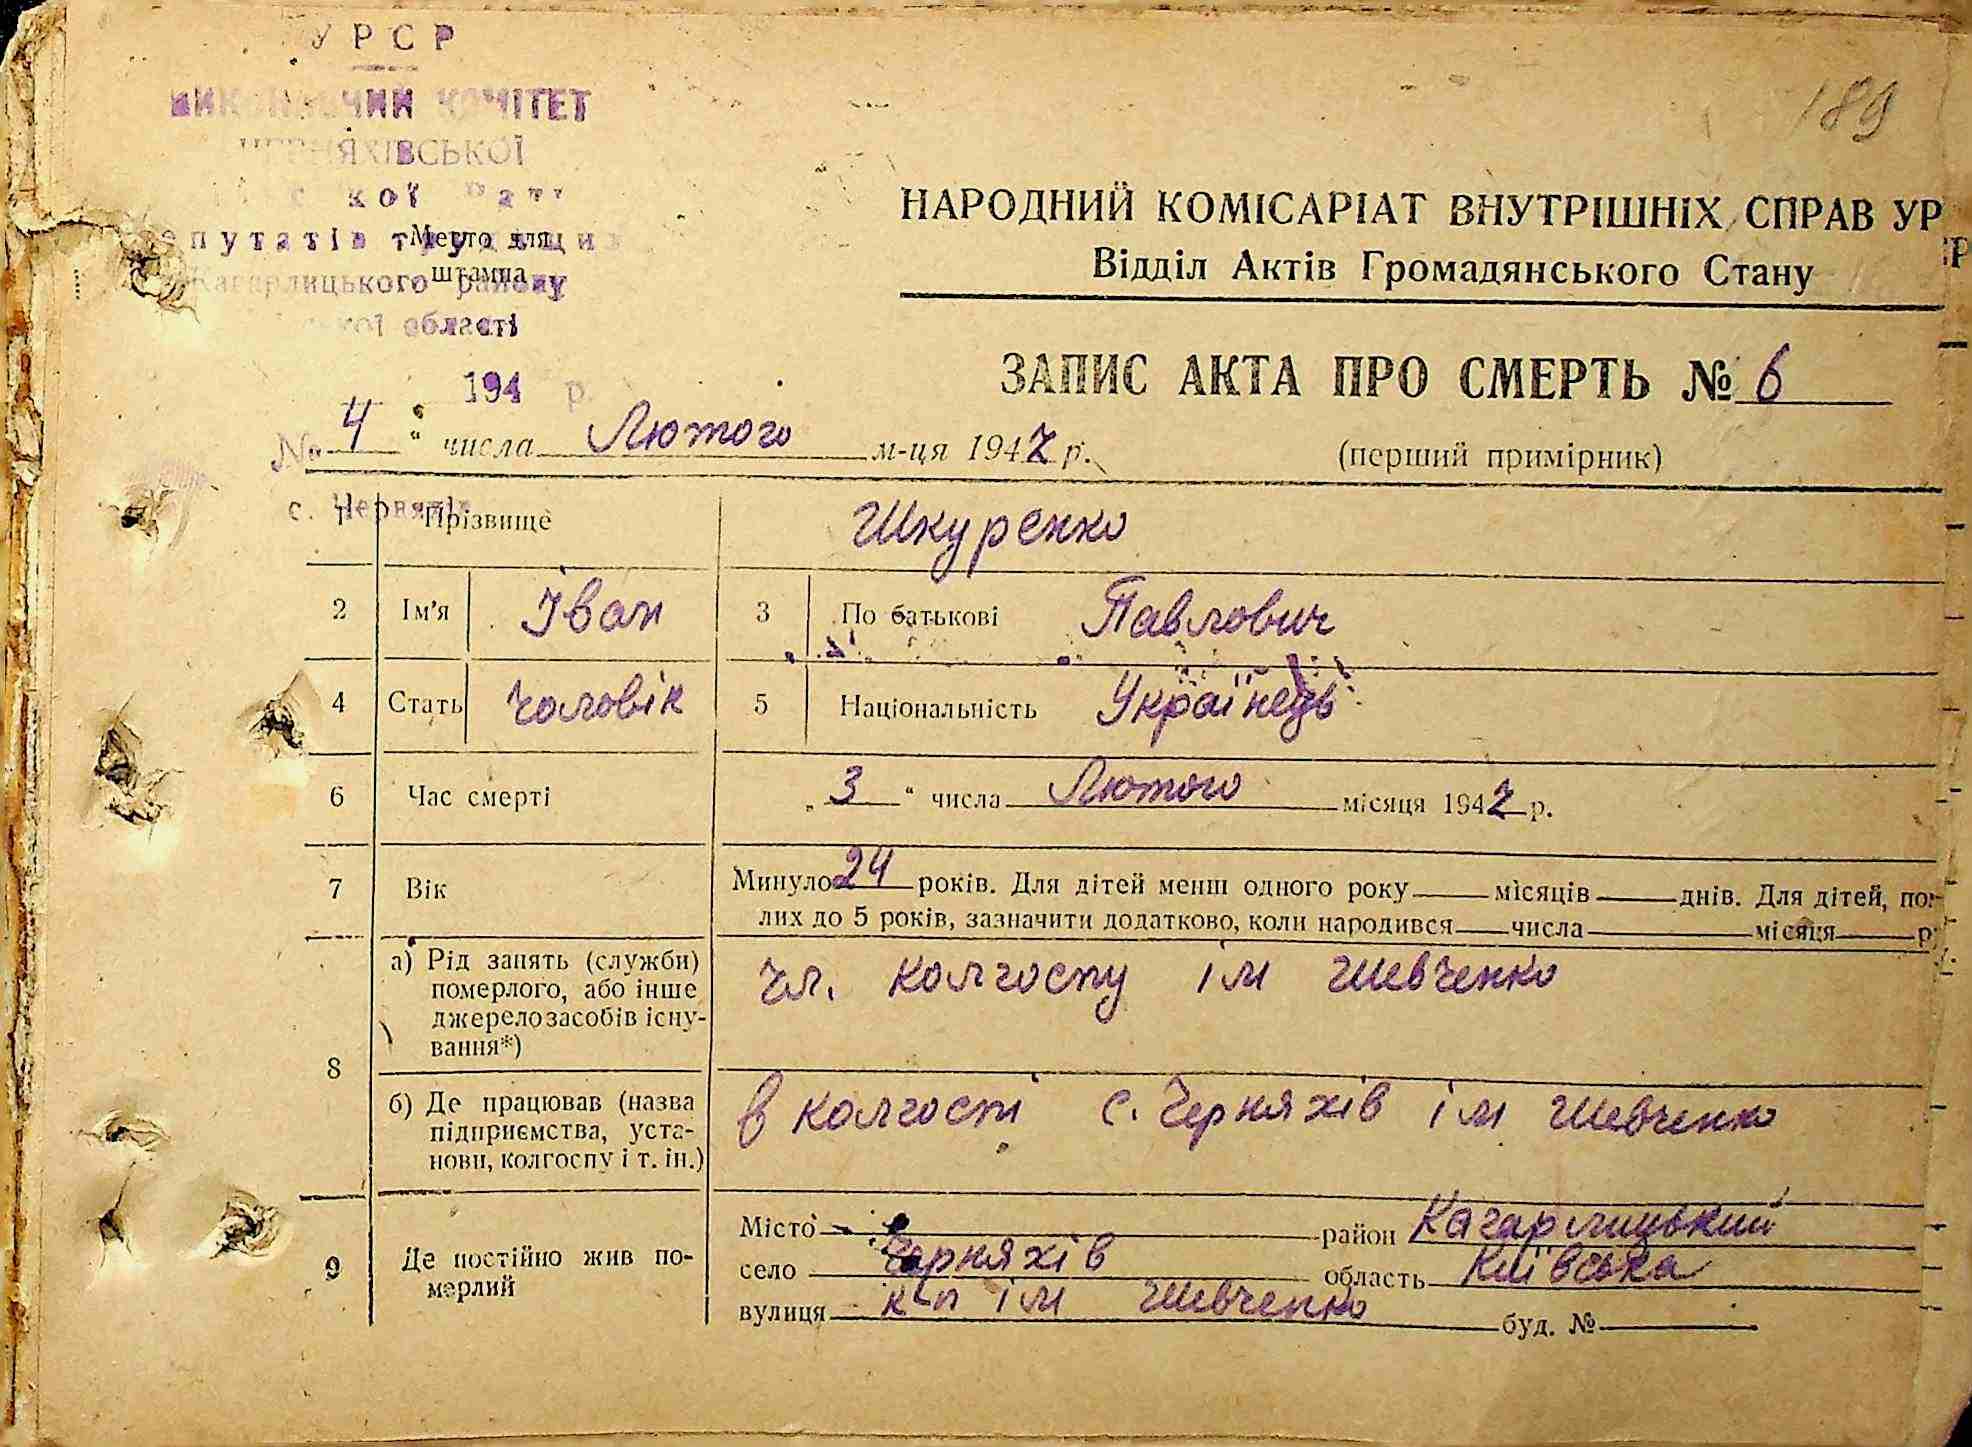 УРСР
ВИКОНАВЧИЙ КОМІТЕТ
ЧЕРНЯХІВСЬКОЇ
депутатів трудящих
Кагарлицького району
області
Место для
штампа
194 р.
№
с. Черняхів
189
НАРОДНИЙ КОМІСАРІАТ ВНУТРІШНІХ СПРАВ УР
Відділ Актів Громадянського Стану
ЗАПИС АКТА ПРО СМЕРТЬ № 6
4 " числа Лютого м-ця 1942 р.
(перший примірник)
1 Прізвище Шкуренко
2 Ім'я Іван 3 По батькові Павлович
4 Стать чоловік 5 Національність Українець
6 Час смерті „ 3 " числа Лютого місяця 1942 р.
7 Вік Минуло 24 років. Для дітей менш одного року місяців днів. Для дітей, по
лих до 5 років, зазначити додатково, коли народився числа місяця р
8 а) Рід занять (служби)
померлого, або інше
джерело засобів існу-
вання*)
чл. колгоспу ім Шевченко
б) Де працював (назва
підприємства, уста-
нови, колгоспу і т. ін.)
в колгоспі с. Черняхів ім Шевченко
9 Де постійно жив по-
мерлий
Місто район Кагарлицький
село Черняхів область Київська
вулиця к-п ім Шевченко буд. №